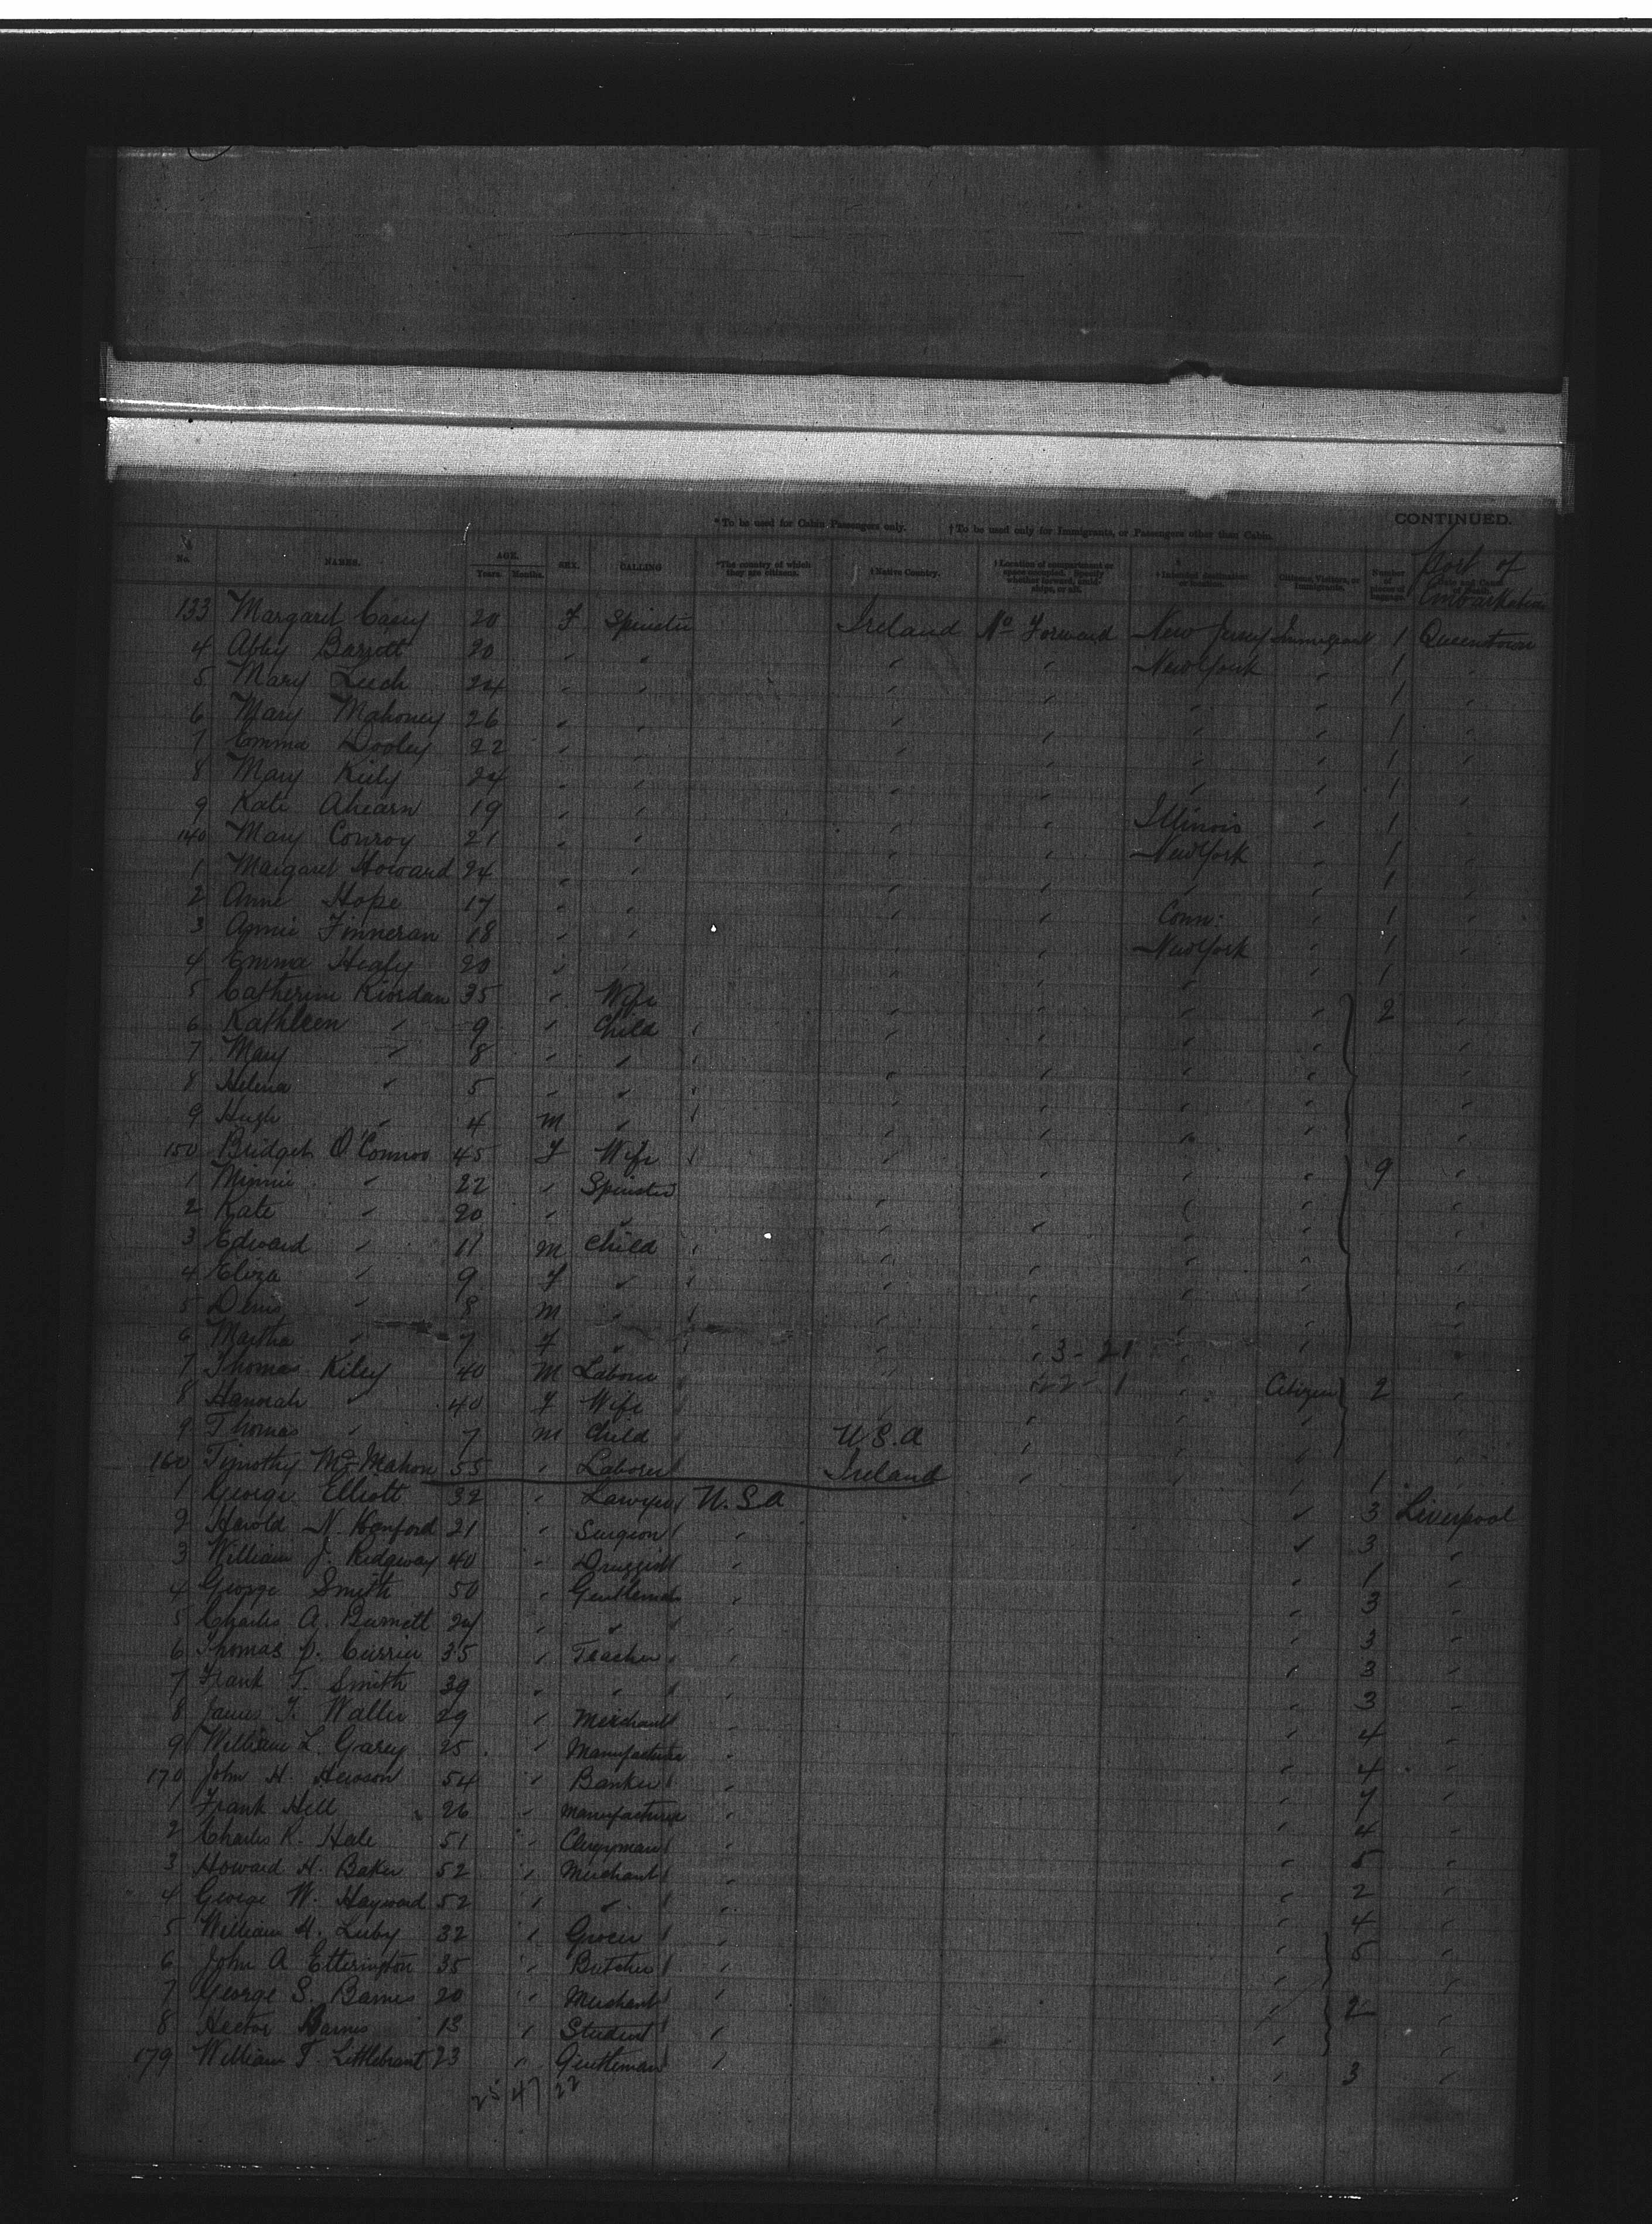 * To be used for Cabin Passengers only. † To be used only for Immigrants, or Passengers other than Cabin. CONTINUED.
No. NAMES. AGE. Years. Months. SEX. CALLING *The country of which they are citizens. † Native Country. † Location of compartment or space occupied. Citizens, Visitors, or Immigrants. Number of Port of Embarkation
133 Margaret Casey 20 F Spinster Ireland No Forward New Jersey Immigrant 1 Queenstown
4 Abby Barrett 20 " " " " New York " 1 "
5 Mary Leech 24 " " " " " " 1 "
6 Mary Mahoney 26 " " " " " " 1 "
7 Emma Dooley 22 " " " " " " 1 "
8 Mary Kiely 24 " " " " " " 1 "
9 Kate Ahearn 19 " " " " Illinois " 1 "
140 Mary Conroy 21 " " " " New York " 1 "
1 Margaret Howard 24 " " " " " " 1 "
2 Anne Hope 17 " " " " Conn: " 1 "
3 Annie Finneran 18 " " " " New York " 1 "
4 Emma Heafy 20 " " " " " " 1 "
5 Catherine Riordan 35 " Wife " " " " 2 "
6 Kathleen " 9 " Child " " " " "
7 Mary " 8 " " " " " " "
8 Helena " 5 " " " " " " "
9 Hugh " 4 M " " " " " "
150 Bridget O'Connor 45 F Wife " " " " 9 "
1 Minnie " 22 " Spinster " " " " "
2 Kate " 20 " " " " " " "
3 Edward " 11 M Child " " " " "
4 Eliza " 9 F " " " " " "
5 Denis " 8 M " " " " " "
6 Martha " 7 F " " " 3-21 " " "
7 Thomas Kiley 40 M Laborer " 22-1 " Citizen 2 "
8 Hannah " 40 F Wife " " " " "
9 Thomas " 7 M Child U.S.A " " " "
160 Timothy McMahon 55 " Laborer Ireland " " " 1 "
1 George Elliott 32 " Lawyer U.S.A " 3 Liverpool
2 Harold N. Hanford 21 " Surgeon " " 3 "
3 William J. Ridgway 40 " Druggist " " 1 "
4 George Smith 50 " Gentleman " " 3 "
5 Charles A. Burnett 24 " " " " 3 "
6 Thomas Currier 35 " Teacher " " 3 "
7 Frank T. Smith 39 " " " " 3 "
8 James T. Waller 29 " Merchant " " 4 "
9 William L. Garey 25 " Manufacturer " " 4 "
170 John H. Hewson 54 " Banker " " 7 "
1 Frank Hell 26 " Manufacturer " " 4 "
2 Charles R. Hale 51 " Clergyman " " 5 "
3 Howard H. Baker 52 " Merchant " " 2 "
4 George W. Hayward 52 " " " " 4 "
5 William H. Luby 32 " Grocer " " 5 "
6 John A Etterington 35 " Butcher " " "
7 George S. Barnes 20 " Merchant " " 2 "
8 Hector Barnes 13 " Student " " "
179 William T. Littlebrant 23 " Gentleman " " 3 "
25 47 22